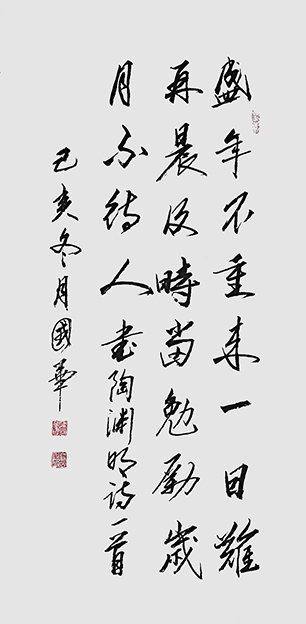 盛年不重来一日難
再晨及時當勉勵歲
月不待人書陶淵明詩一首
己亥冬月國華